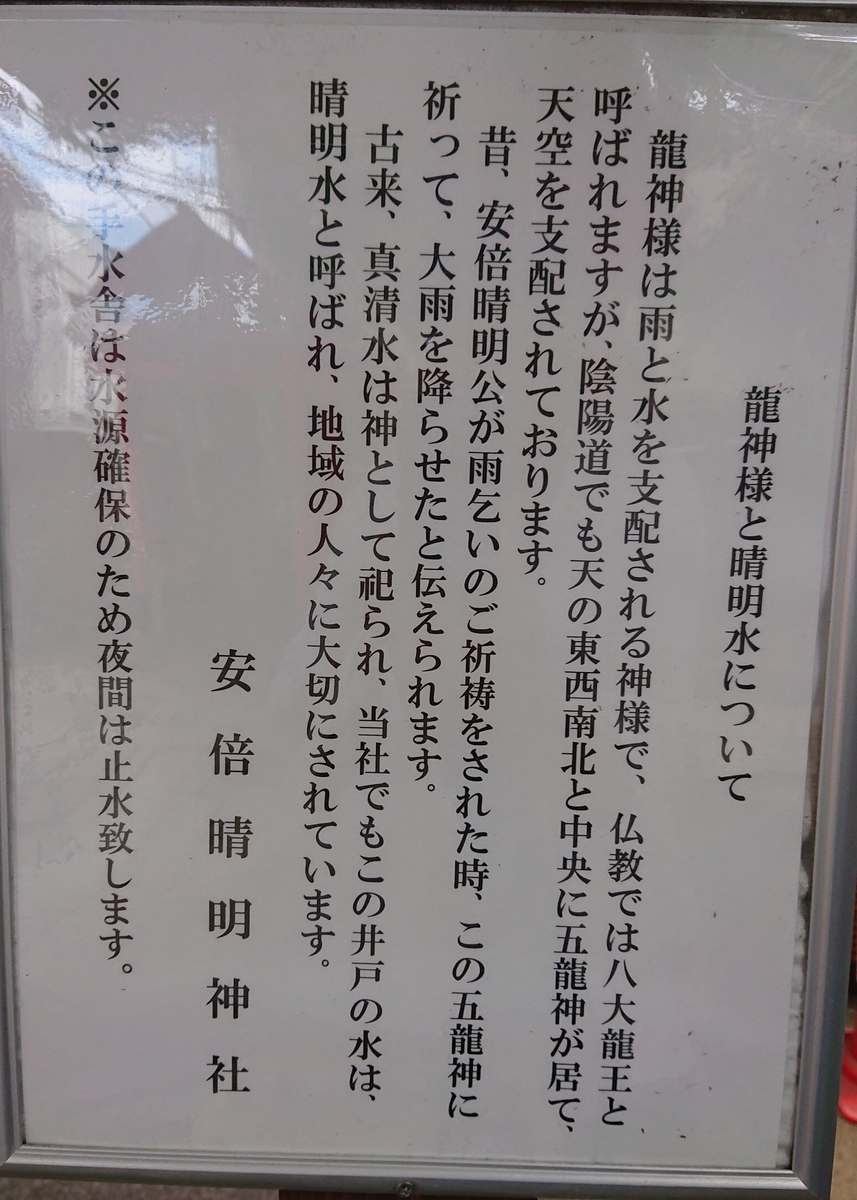 龍神様と晴明水について
龍神様は雨と水を支配される神様で、仏教では八大龍王と
呼ばれますが、陰陽道でも天の東西南北と中央に五龍神が居て、
天空を支配されております。
昔、安倍晴明公が雨乞いのご祈祷をされた時、この五龍神に
祈って、大雨を降らせたと伝えられます。
古来、真清水は神として祀られ、当社でもこの井戸の水は、
晴明水と呼ばれ、地域の人々に大切にされています。
安倍晴明神社
※この手水舎は水源確保のため夜間は止水致します。